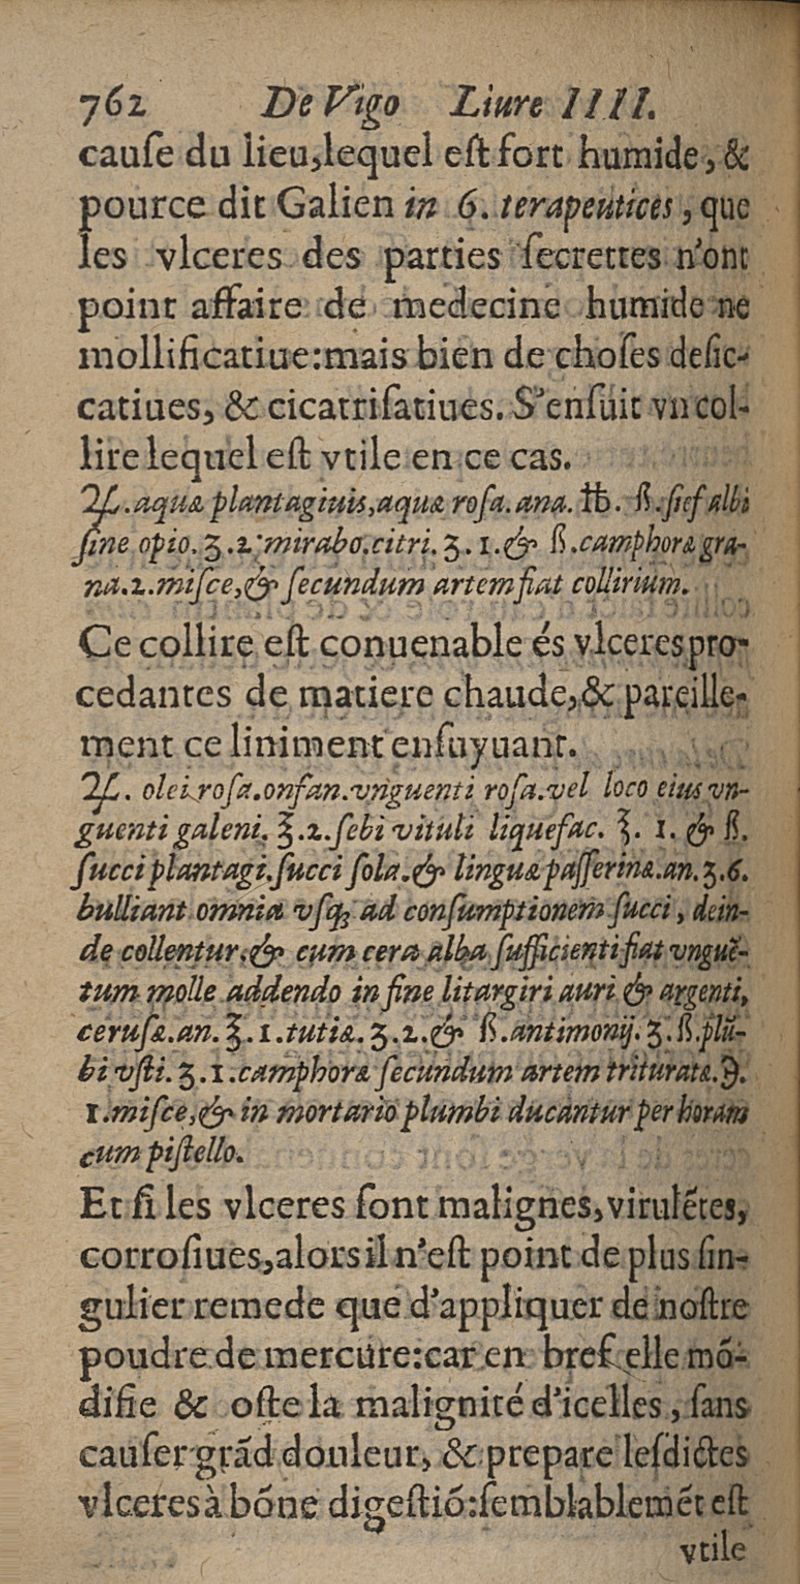 762 De Vigo Liure IIII.
cauſe du lieu,lequel eſt fort humide, &
pource dit Galien in 6. terapeutices, que
les vlceres des parties ſecrettes n'ont
point affaire de medecine humide ne
mollificatiue:mais bien de choſes deſic-
catiues, & cicatriſatiues. S'enſuit vn col-
lire lequel eſt vtile en ce cas.
♃. aquæ plantaginis,aquæ roſa. ana. ℔. ß. ſief albi
ſine opio. ʒ.2. mirabo.citri. ʒ. 1.& ß.camphoræ gra-
na.2.miſce,& ſecundum artem fiat collirium.
Ce collire eſt conuenable és vlceres pro-
cedantes de matiere chaude,& pareille-
ment ce liniment enſuyuant.
♃. olei roſa.onfan.vnguenti roſa.vel loco eius vn-
guenti galeni. ℥.2.ſebi vituli liquefac. ℥. 1. & ß.
ſucci plantagi.ſucci ſola.& linguæ paſſerinæ.an.ʒ.6.
bulliant omnia vſqꝫ ad conſumptionem ſucci, dein-
de collentur,& cum cera alba ſufficienti fiat vnguẽ-
tum molle addendo in fine litargiri auri & argenti,
ceruſæ.an.℥.1.tutiæ.ʒ.2.& ß.antimonij.ʒ.ß.plũ-
bi vſti.ʒ.1.camphoræ ſecundum artem trituratæ.℈.
1.miſce,& in mortario plumbi ducantur per horam
cum piſtello.
Et ſi les vlceres ſont malignes,virulẽtes,
corroſiues,alors il n'eſt point de plus ſin-
gulier remede que d'appliquer de noſtre
poudre de mercure:car en bref elle mõ-
difie & oſte la malignité d'icelles, ſans
cauſer grãd douleur, & prepare leſdictes
vlceres à bõne digeſtiõ:ſemblablemẽt eſt
vtile